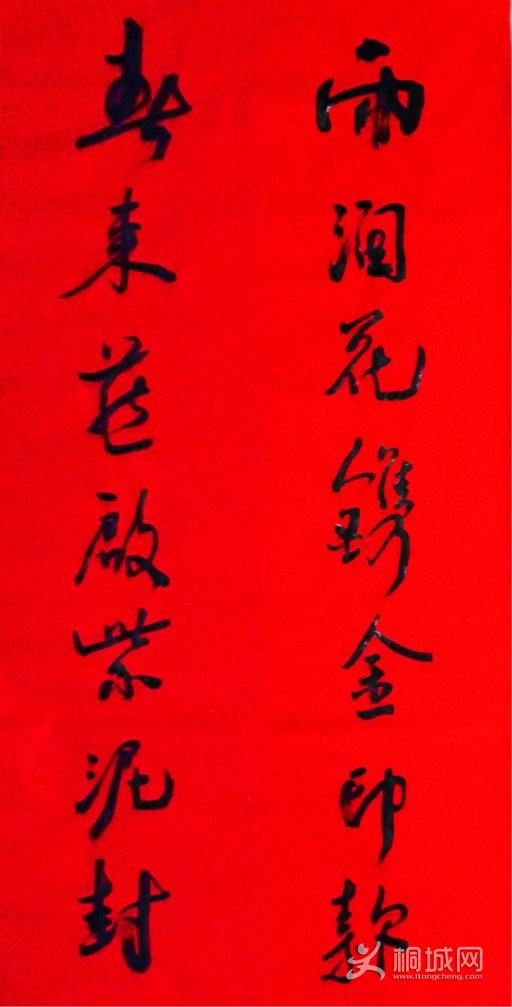 雨潤花鐫金印款
春來燕啟紫泥封
桐城网
www.itongcheng.com